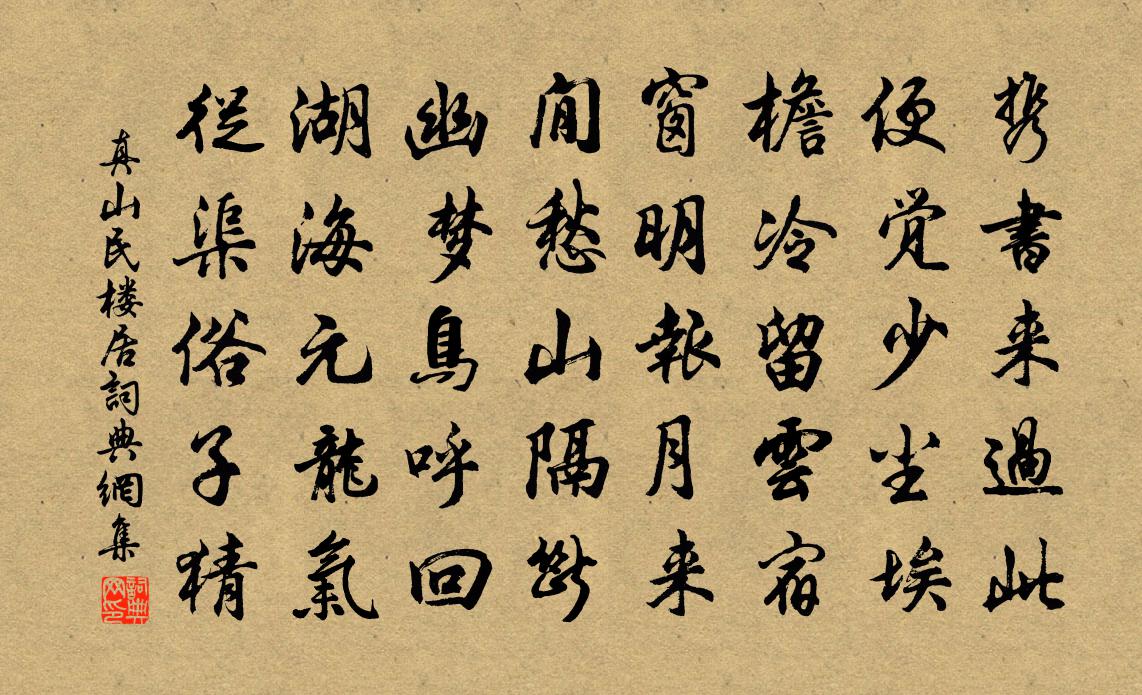 携書来過此
便觉少尘埃
檐冷留雲宿
窗明報月来
閒愁山隔断
幽梦鳥呼回
湖海元龍氣
從渠俗子猜
真山民楼居詞典網集
詞典网印